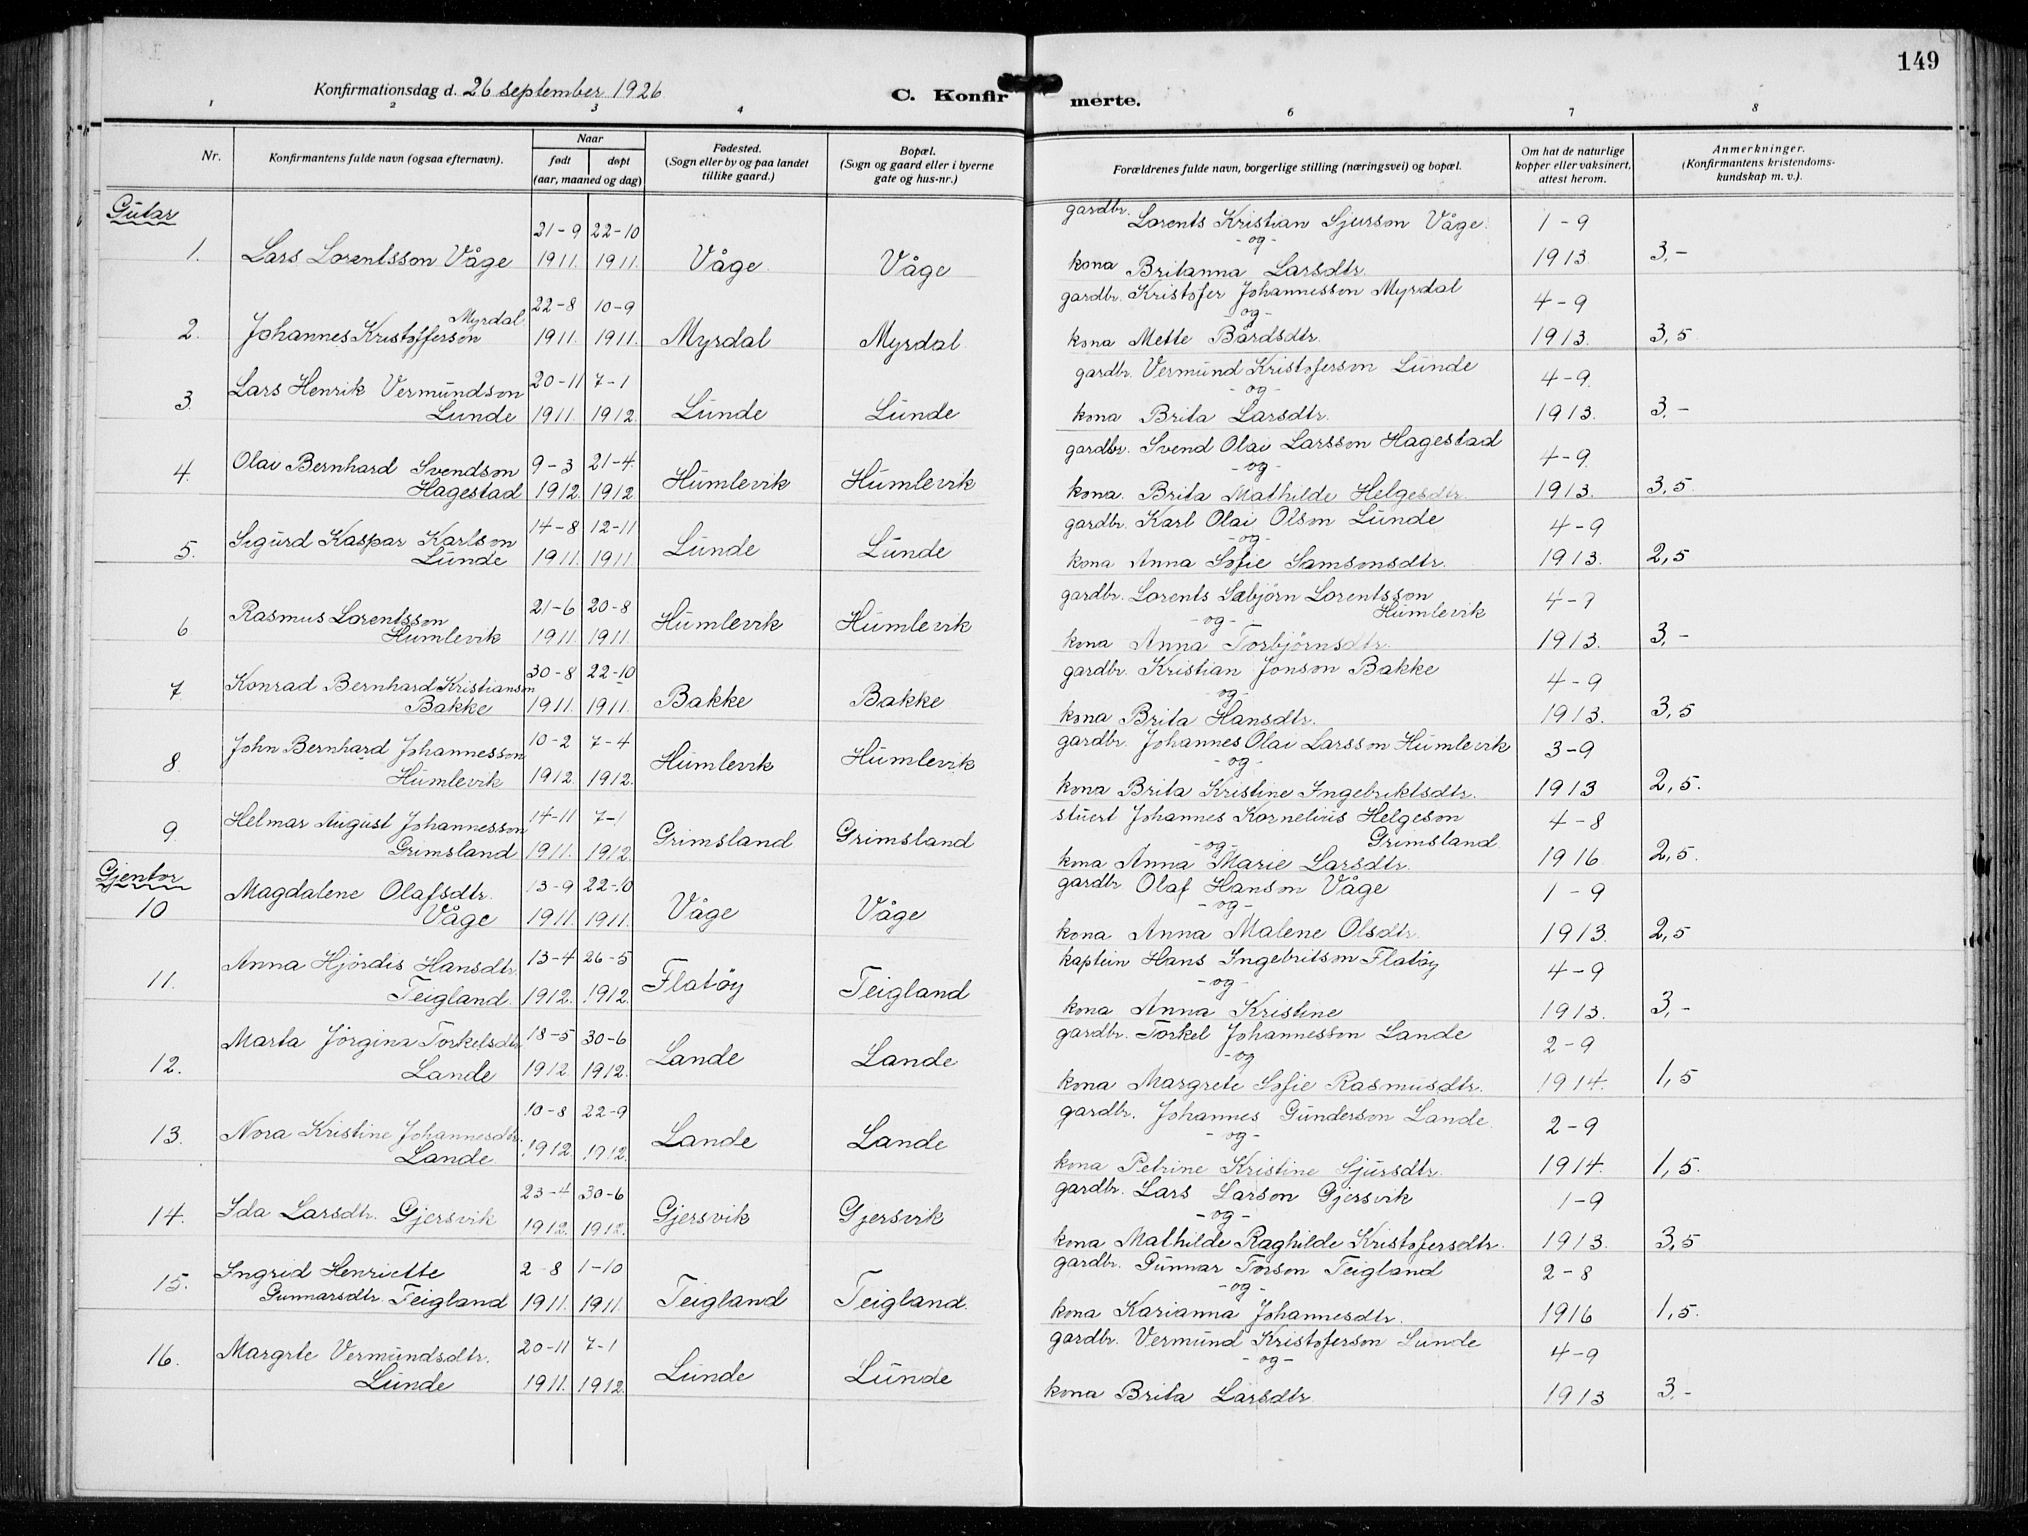 149
Konfirmationsdag d. 26 september 1926
C. Konfirmerte.
1 2 3 4 6 7 8
Nr.
Konfirmantens fulde navn (ogsaa efternavn).
Naar
født døpt
(aar, maaned og dag)
Fødested.
(Sogn eller by og paa landet
tillike gaard.)
Bopæl.
(Sogn og gaard eller i byerne
gate og hus-nr.)
Forældrenes fulde navn, borgerlige stilling (næringsvei) og bopæl.
Om hat de naturlige
kopper eller vaksinert,
attest herom.
Anmerkninger.
(Konfirmantens kristendoms-
kundskap m. v.).
Gutar
21-9 22-10 gardbr. Lorents Kristian Sjurson Våge. 1-9
-og-
1. Lars Lorentsson Våge 1911. 1911. Våge. Våge kona Britanna Larsdtr. 1913 3,-
22-8 10-9 gardbr. Kristofer Johannesson Myrdal 4-9
Myrdal -og-
2. Johannes Kristofferson 1911. 1911. Myrdal Myrdal kona Mette Bårdsdtr. 1913. 3,5
Lars Henrik Vermundson 20-11 7-1 gardbr. Vermund Kristoferson Lunde 4-9.
-og-
3. Lunde 1911. 1912. Lunde Lunde kona Brita Larsdtr. 1913. 3,-
Olai Bernhard Svendson 9-3 21-4. gardbr. Svend Olai Larsson Hagestad 4-9.
-og-
4. Hagestad 1912. 1912 Humlevik Humlevik kona. Brita Mathilde Helgesdtr. 1913. 3,5
Sigurd Kaspar Karlson 14-8 12-11 gardbr. Karl Olai Olson Lunde 4-9
-og-
5. Lunde 1911. 1911. Lunde Lunde kona Anna Sofie Samsonsdtr. 1913. 2,5
Rasmus Lorentsson 21-6 20-8 gardbr. Lorents Sæbjörn Lorentsson 4-9
Humlevik
-og-
6 Humlevik 1911. 1911. Humlevik Humlevik kona Anna Torbjörnsdtr. 1913. 3,-
Konrad Bernhard Kristianson 30-8 22-10 gardbr. Kristian Jonson Bakke 4-9
-og-
7 Bakke 1911. 1911. Bakke Bakke kona Brita Hansdtr. 1913. 3,5
John Bernhard Johannesson 10-2 7-4 gardbr. Johannes Olai Larsson Humlevik 3-9
-og-
8. Humlevik 1912. 1912. Humlevik Humlevik kona Brita Kristine Ingebriktsdtr. 1913 2,5.
Helmar August Johannesson 14-11 7-1 stuert Johannes Kornelius Helgeson 4-8
Grimsland
-og-
9. Grimsland 1911. 1912. Grimsland Grimsland kona Anna Marie Larsdtr. 1916 2,5.
Gjentor
Magdalene Olafsdtr. 13-9 22-10 gardbr Olaf Hanson Våge 1-9
-og-
10 Våge 1911. 1911. Våge Våge kona Anna Malene Olsdtr. 1913. 2,5
Anna Hjördis Hansdtr. 13-4 26-5 kaptein Hans Ingebritson Flatöy 4-9
-og-
11. Teigland. 1912. 1912. Flatöy Teigland kona Anna Kristine 1913. 3,-
Marta Jörgina Torkelsdtr 18-5 30-6 gardbr. Torkel Johannesson Lande 2-9
-og
12. Lande 1912. 1912. Lande Lande kona Margrete Sofie Rasmusdtr. 1914. 1,5
Nora Kristine Johannesdtr. 10-8 22-9 gardbr. Johannes Gunderson Lande. 2-9
-og-
13. Lande 1912. 1912. Lande Lande kona Petrine Kristine Sjursdtr. 1914. 1,5.
23-4 30-6 gardbr. Lars Larson Gjersvik 1-9
-og-
14. Ida Larsdtr. Gjersvik 1912. 1912. Gjersvik Gjersvik kona Mathilde Raghilde Kristofersdtr. 1913. 3,5
Ingrid Henriette 2-8 1-10 gardbr. Gunnar Torson Teigland 2-8
-og-
15. Gunnarsdtr. Teigland 1911. 1911. Teigland Teigland. kona Karianna Johannesdtr. 1916 1,5.
Margrte Vermundsdtr. 20-11 7-1 gardbr. Vermund Kristoferson Lunde 4-9
-og-
16. Lunde 1911. 1912. Lunde Lunde kona Brita Larsdtr 1913 3,-